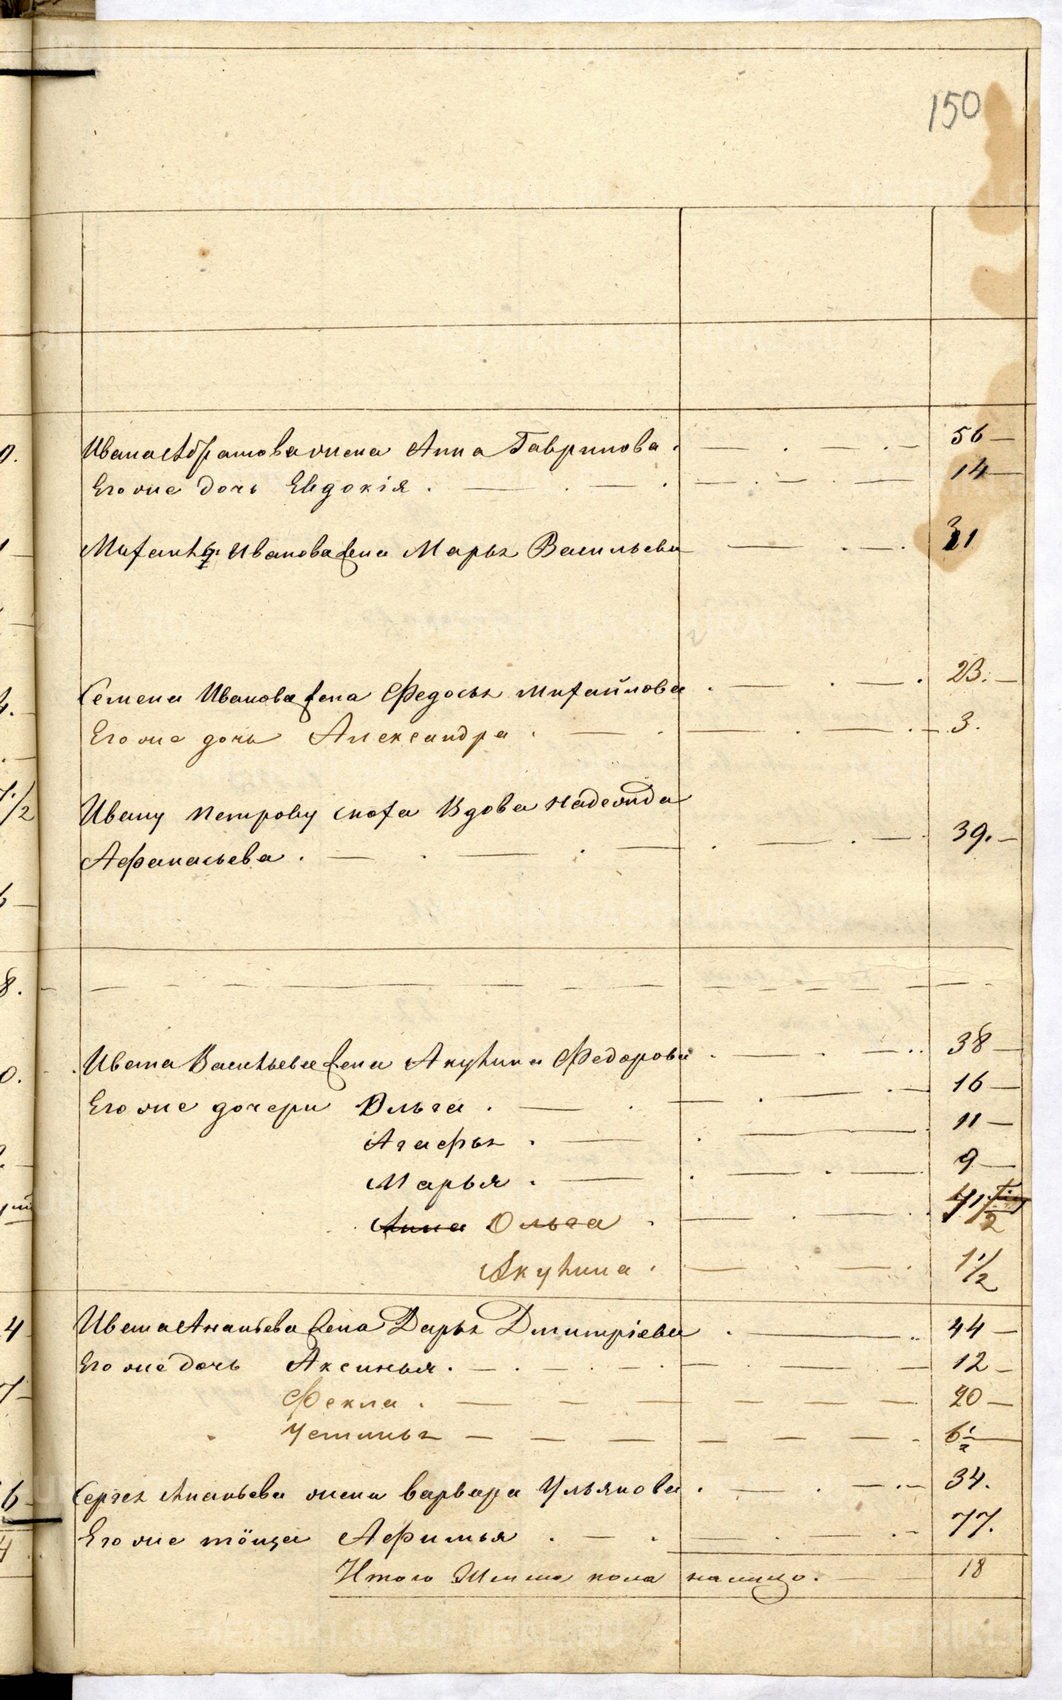 150
Ивана Абрамова жена Анна Гаврилова . 56
Его же дочь Евдокія . 14
Иванова жена Марья Васильева 31
Семена Иванова жена Федосья Михайлова . 23.
Его же дочь Александра . 3.
Ивану Петрову сноха Вдова Надежда
Афанасьева . 39.
Ивана Васильева жена Акулина Федорова 38
Его же дочери Ольга . 16
Агафья . 11
Марья . 9
Анна Ольга .
Акулина . 1 1/2
Ивана Ананьева жена Дарья Дмитріева . 44
Его же дочь Аксинья . 12
Фекла . 20
Устинья 6 1/2
Сергея Ананьева жена варвара Ульянова . 34.
Его же тёща Афимья . 77.
Итого женска пола налицо . 18